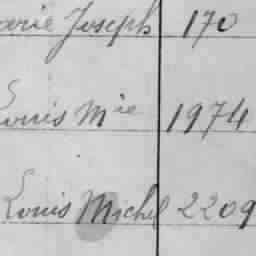 arie Joseph 170
Louis Mie 1974
Louis Michel 2209